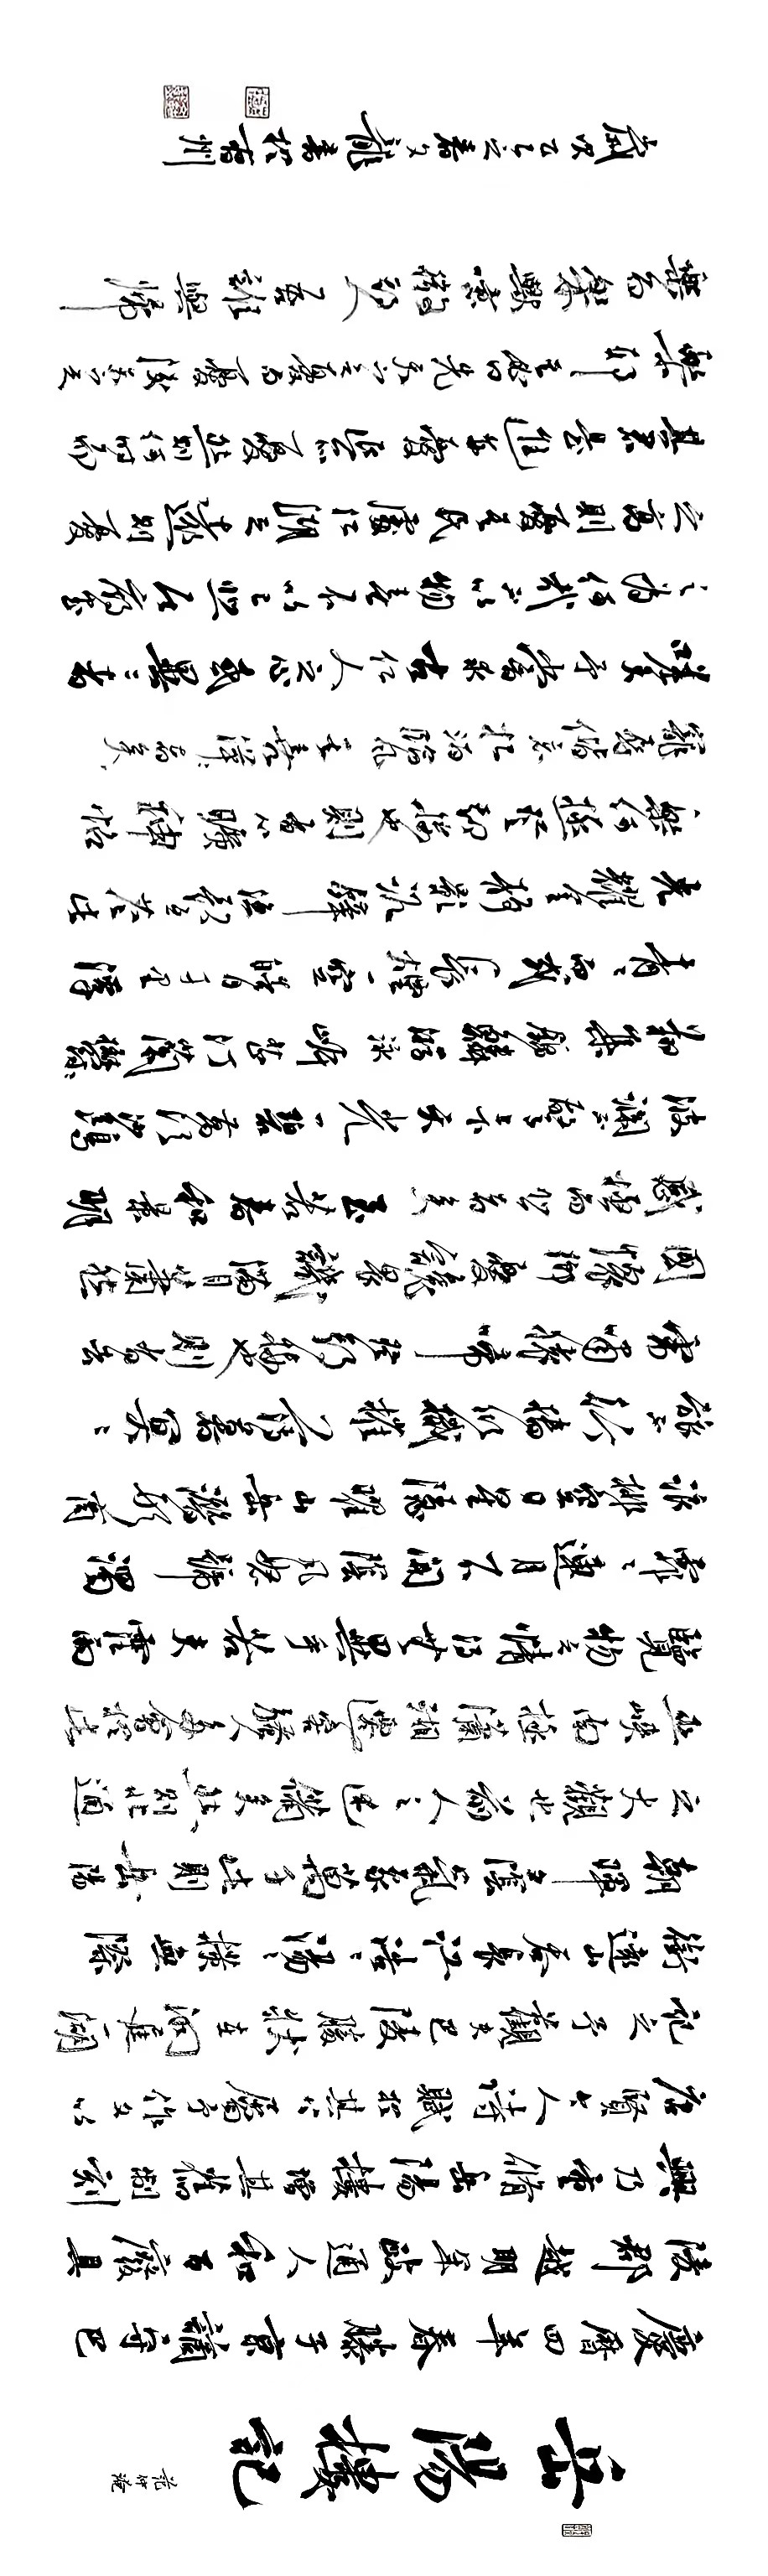 岳陽樓記
范仲淹
慶曆四年春滕子京謫守巴
陵郡越明年政通人和百廢具
興乃重修岳陽樓增其舊制刻
唐賢今人詩賦於其上屬予作文以
記之予觀夫巴陵勝狀在洞庭一湖
銜遠山吞長江浩浩湯湯橫無際
朝暉夕陰氣象萬千此則岳陽
之大觀也前人之述備矣然則北通
巫峽南極瀟湘遷客騷人多會於此
覽物之情得無異乎若夫霪雨
霏霏連月不開陰風怒號濁
浪排空日星隱曜山岳潛形商
旅不行檣傾楫摧薄暮冥冥
虎嘯猿啼登斯樓也則有去
國懷鄉憂讒畏譏滿目蕭然
感極而悲者矣至若春和景明
波瀾不驚上下天光一碧萬頃沙鷗
翔集錦鱗游泳岸芷汀蘭鬱郁
青青而或長煙一空皓月千里浮
光耀金靜影沉璧漁歌互答此
樂何極登斯樓也則有心曠神怡
寵辱偕忘把酒臨風其喜洋洋者矣
嗟夫予嘗求古仁人之心或異二者
之為何哉不以物喜不以己悲居廟堂
之高則憂其民處江湖之遠則憂
其君是進亦憂退亦憂然則何時而
樂耶其必曰先天下之憂而憂後天下之
樂而樂歟噫微斯人吾誰與歸
歲次乙巳之春文龍書於吉州